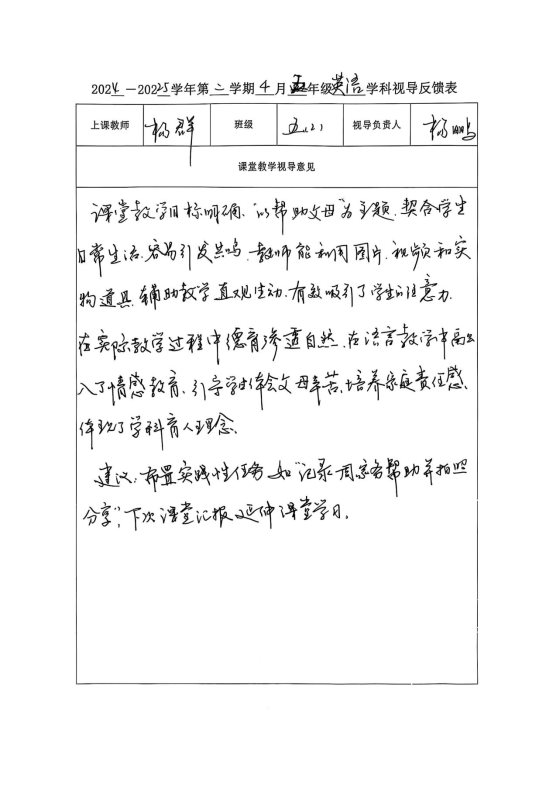 2024—2025学年第二学期4月五年级英语学科视导反馈表
上课教师 杨群 班级 五(2) 视导负责人 杨鹏
课堂教学视导意见
课堂教学目标明确.“以帮助父母”为主题.契合学生
日常生活.容易引发共鸣.教师能利用图片.视频和实
物道具.辅助教学直观生动.有效吸引了学生的注意力.
在实际教学过程中德育渗透自然.在语言教学中融
入了情感教育.引导学生体会父母辛苦.培养家庭责任感.
体现了学科育人理念.
建议:布置实践性任务如“记录周末帮助并拍照
分享”,下次课堂汇报延伸课堂学习.